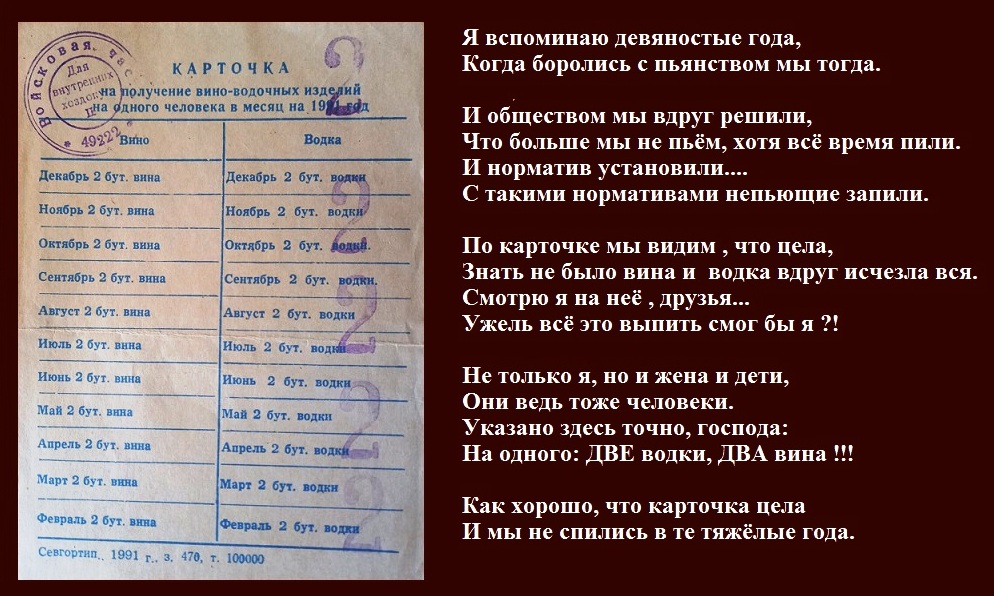 Войсковая час
Для
внутренних
хоздоку
П
* 49222 *
КАРТОЧКА
на получение вино-водочных изделий
на одного человека в месяц на 1991 год
2
Вино Водка
Декабрь 2 бут. вина Декабрь 2 бут. водки
Ноябрь 2 бут. вина Ноябрь 2 бут. водки
Октябрь 2 бут. вина Октябрь 2 бут. водки.
Сентябрь 2 бут. вина Сентябрь 2 бут. водки.
Август 2 бут. вина Август 2 бут. водки
Июль 2 бут. вина Июль 2 бут. водки
Июнь 2 бут. вина Июнь 2 бут. водки
Май 2 бут. вина Май 2 бут. водки
Апрель 2 бут. вина Апрель 2 бут. водки
Март 2 бут. вина Март 2 бут. водки
Февраль 2 бут. вина Февраль 2 бут. водки
2
2
2
2
2
Севгортип., 1991 г., з. 470, т. 100000
Я вспоминаю девяностые года,
Когда боролись с пьянством мы тогда.
И обществом мы вдруг решили,
Что больше мы не пьём, хотя всё время пили.
И норматив установили....
С такими нормативами непьющие запили.
По карточке мы видим , что цела,
Знать не было вина и водка вдруг исчезла вся.
Смотрю я на неё , друзья...
Ужель всё это выпить смог бы я ?!
Не только я, но и жена и дети,
Они ведь тоже человеки.
Указано здесь точно, господа:
На одного: ДВЕ водки, ДВА вина !!!
Как хорошо, что карточка цела
И мы не спились в те тяжёлые года.